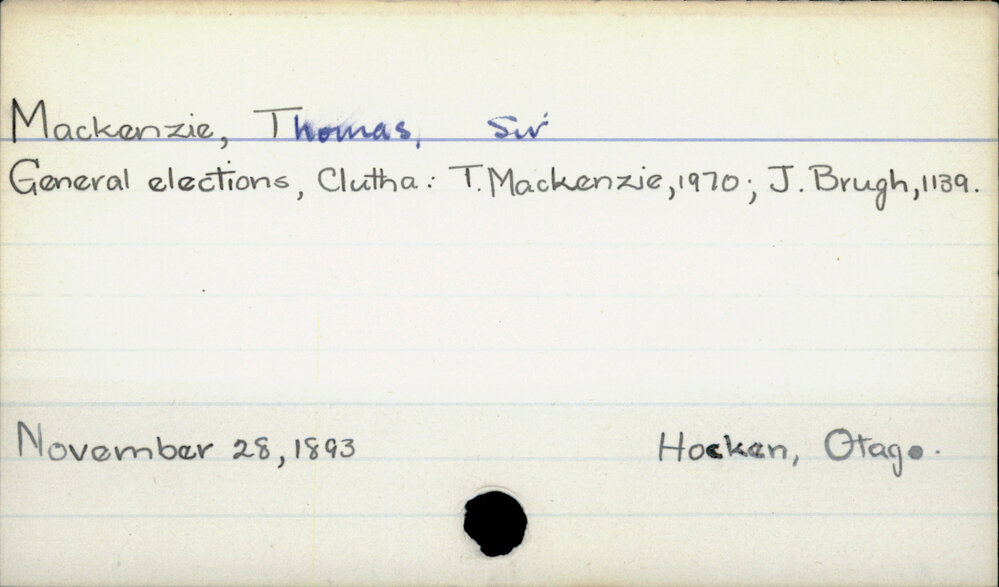 Mackenzie, Thomas, Sir
General elections, Clutha: T. Mackenzie, 1970; J. Brugh, 1139.
November 28, 1893
Hocken, Otago.